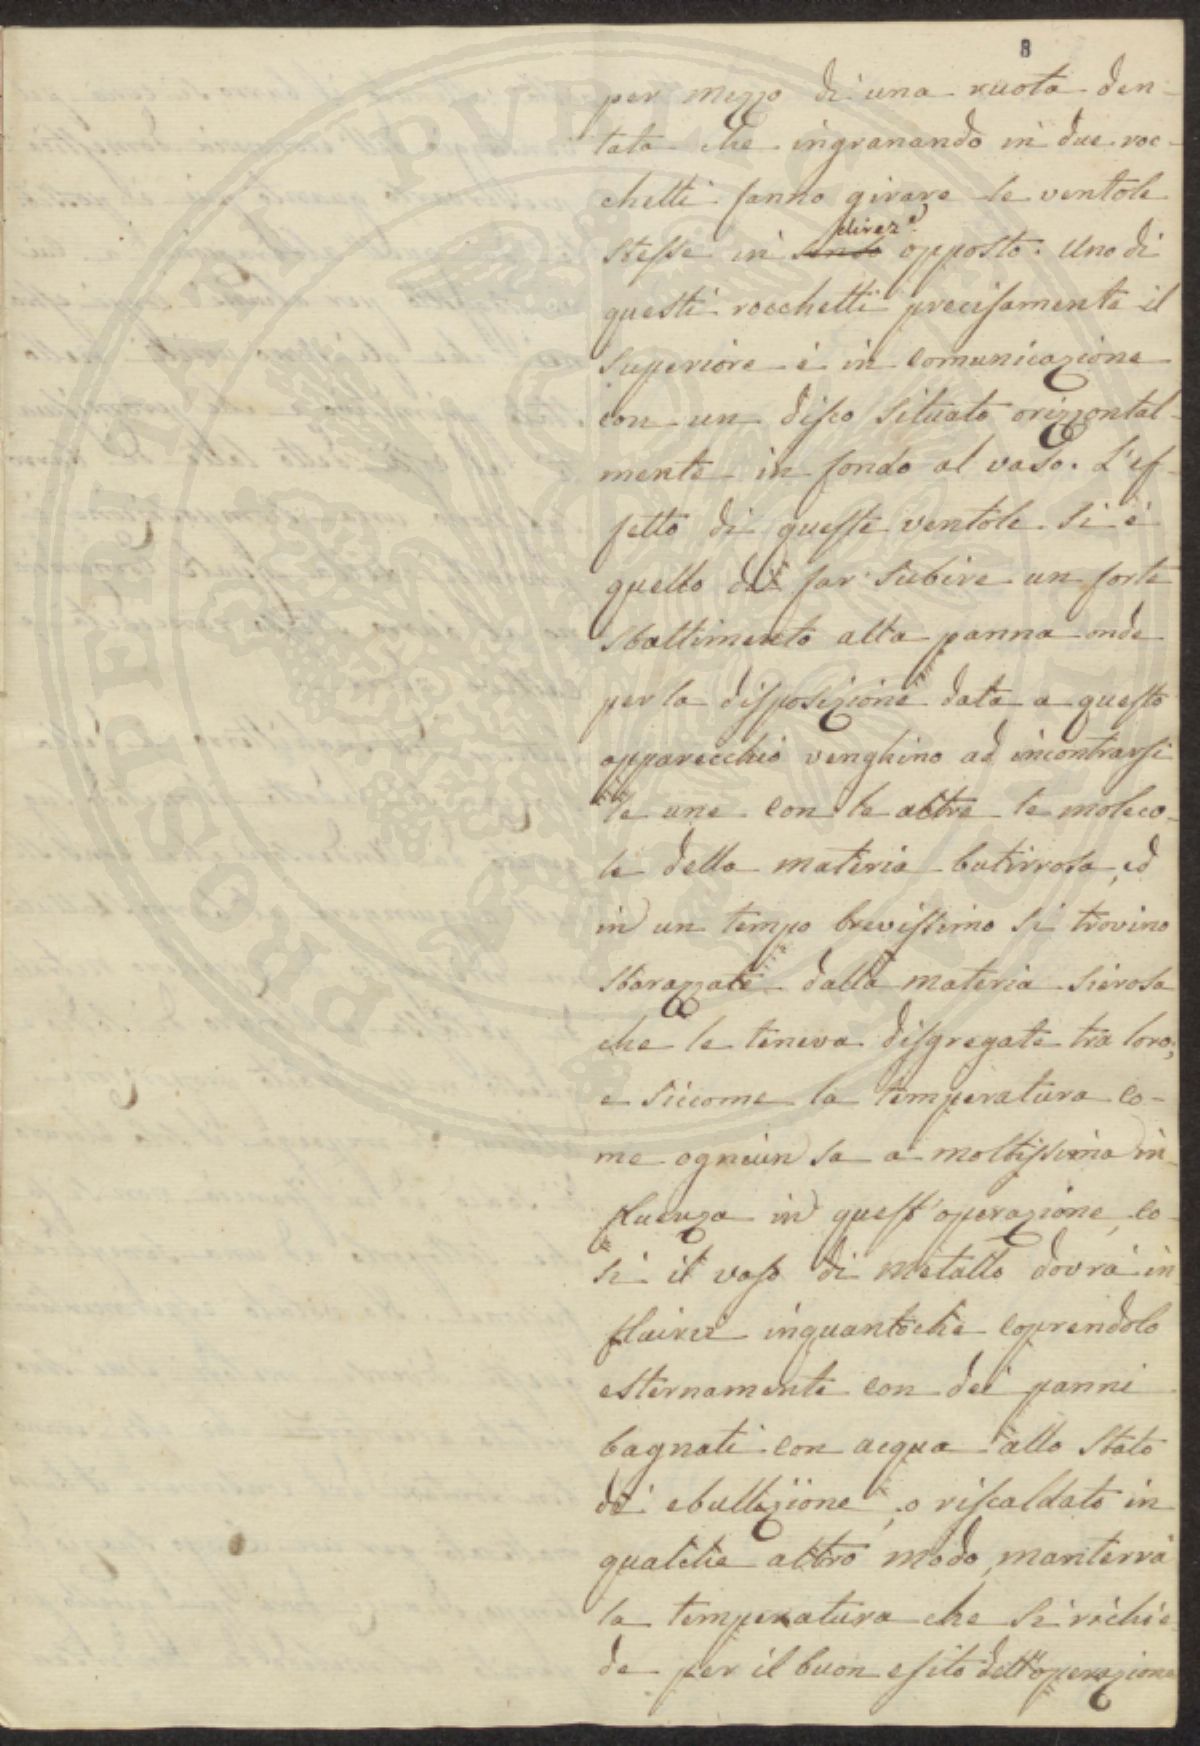 8
per mezzo di una ruota den-
tata che ingranando in due roc-
chetti fanno girare le ventole
direz.e
stesse in senso opposto. Uno di
questi rocchetti precisamente il
superiore è in comunicazione
con un disco situato orizzontal-
mente in fondo al vaso. L'ef-
fetto di queste ventole si è
quello di far subire un forte
sbattimento alla panna onde
per la disposizione data a questo
apparecchio venghino ad incontrarsi
le une con le altre le moleco-
le della materia butirrosa, ed
in un tempo brevissimo si trovino
sbarazzate dalla materia sierosa
che le teneva disgregate tra loro;
e siccome la temperatura co-
me ogniun sa a moltissima in-
fluenza in quest'operazione, co-
sì il vaso di metallo dovrà in-
fluirci inquantoche coprendolo
esternamente con dei panni
bagnati con acqua allo stato
di ebullizione, o riscaldato in
qualche altro modo, manterrà
la temperatura che si richie
de per il buon esito dell'operazione
PROSPERITATI PVBLICAE